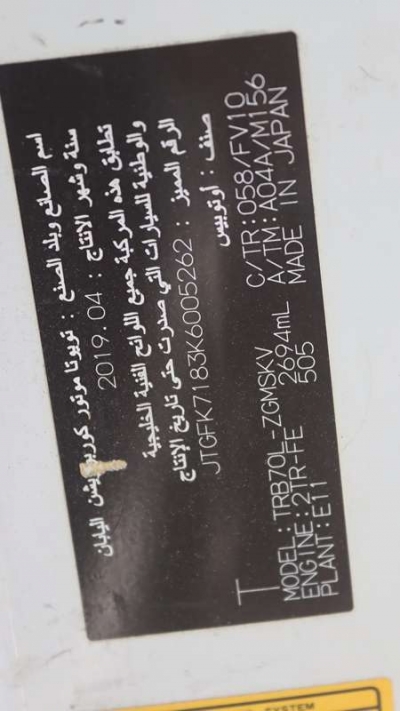 اسم الصانع وبلد الصنع : تويوتا موتور كوربوريشن اليابان
سنة وشهر الانتاج : 2019.04
تطابق هذه المركبة جميع اللوائح الفنية الخليجية
والوطنية للسيارات التي صدرت حتى تاريخ الإنتاج
الرقم المميز : JTGFK7183K6005262
صنف : أوتوبيس
T
MODEL:TRB70L-ZGMSKV C/TR:058/FV10
ENGINE:2TR-FE 2694mL A/TM:A04A/M156
PLANT:E11 505 MADE IN JAPAN
SYSTEM